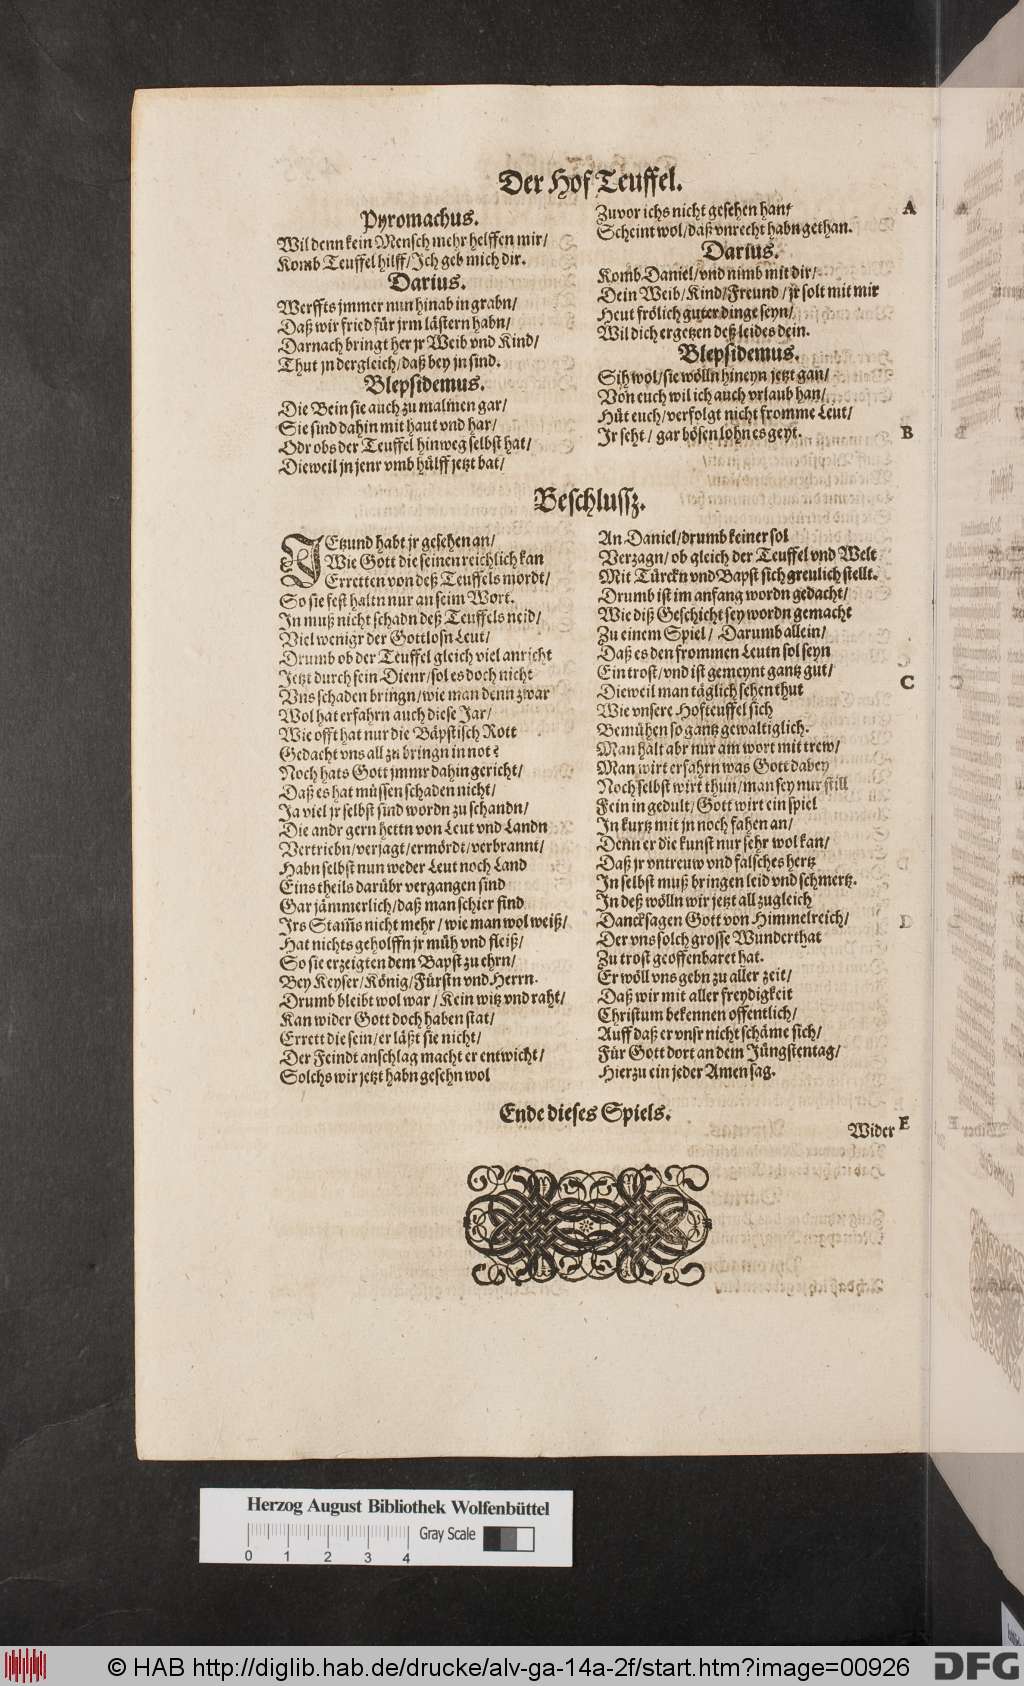 Der Hof Teuffel.
Pyromachus.
Wil denn kein Mensch mehr helffen mir/
Komb Teuffel hilff/Ich geb mich dir.
Darius.
Werffts jmmer nun hinab in grabn/
Daß wir fried für jrm lästern habn/
Darnach bringt her jr Weib vnd Kind/
Thut jn dergleich/daß bey jn sind.
Blepsidemus.
Die Bein sie auch zu malmen gar/
Sie sind dahin mit haut vnd har/
Odr obs der Teuffel hinweg selbst hat/
Dieweil jn jenr vmb hülff jetzt bat/
Zuvor ichs nicht gesehen han/
Scheint wol/daß vnrecht habn gethan.
Darius.
Komb Daniel/vnd nimb mit dir/
Dein Weib/Kind/Freund/jr solt mit mir
Heut frölich guter dinge seyn/
Wil dich ergetzen deß leides dein.
Blepsidemus.
Sih wol/sie wölln hineyn jetzt gan/
Von euch wil ich auch vrlaub han/
Hüt euch/verfolgt nicht fromme Leut/
Jr seht/gar bösen lohn es geyt.
A
B
Beschlussz.
IEtzund habt jr gesehen an/
Wie Gott die seinen reichlich kan
Erretten von deß Teuffels mordt/
So sie fest haltn nur an seim Wort.
Jn muß nicht schadn deß Teuffels neid/
Viel wenigr der Gottlosn Leut/
Drumb ob der Teuffel gleich viel anricht
Jetzt durch sein Dienr/sol es doch nicht
Vns schaden bringn/wie man denn zwar
Wol hat erfahrn auch diese Jar/
Wie offt hat nur die Bäpstisch Rott
Gedacht vns all zu bringn in not?
Noch hats Gott jmmr dahin gericht/
Daß es hat müssen schaden nicht/
Ja viel jr selbst sind wordn zu schandn/
Die andr gern hettn von Leut vnd Landn
Vertriebn/verjagt/ermördt/verbrannt/
Habn selbst nun weder Leut noch Land
Eins theils darübr vergangen sind
Gar jämmerlich/daß man schier find
Jrs Stam̃s nicht mehr/wie man wol weiß/
Hat nichts geholffn jr müh vnd fleiß/
So sie erzeigten dem Bapst zu ehrn/
Bey Keyser/König/Fürstn vnd Herrn.
Drumb bleibt wol war/Kein witz vnd raht/
Kan wider Gott doch haben stat/
Errett die sein/er läßt sie nicht/
Der Feindt anschlag macht er entwicht/
Solchs wir jetzt habn gesehn wol
An Daniel/drumb keiner sol
Verzagn/ob gleich der Teuffel vnd Welt
Mit Türckn vnd Bapst sich greulich stellt.
Drumb ist im anfang wordn gedacht/
Wie diß Geschicht sey wordn gemacht
Zu einem Spiel/Darumb allein/
Daß es den frommen Leutn sol seyn
Ein trost/vnd ist gemeynt gantz gut/
Dieweil man täglich sehen thut
Wie vnsere Hofteuffel sich
Bemühen so gantz gewaltiglich.
Man halt abr nur am wort mit trew/
Man wirt erfahrn was Gott dabey
Noch selbst wirt thun/man sey nur still
Fein in gedult/Gott wirt ein spiel
In kurtz mit jn noch fahen an/
Denn er die kunst nur sehr wol kan/
Daß jr vntreuw vnd falsches hertz
Jn selbst muß bringen leid vnd schmertz.
In deß wölln wir jetzt all zugleich
Dancksagen Gott von Himmelreich/
Der vns solch grosse Wunderthat
Zu trost geoffenbaret hat.
Er wöll vns gebn zu aller zeit/
Daß wir mit aller freydigkeit
Christum bekennen offentlich/
Auff daß er vnsr nicht schäme sich/
Für Gott dort an dem Jüngstentag/
Hierzu ein jeder Amen sag.
C
D
Ende dieses Spiels.
Wider E
Herzog August Bibliothek Wolfenbüttel
0 1 2 3 4
Gray Scale
© HAB http://diglib.hab.de/drucke/alv-ga-14a-2f/start.htm?image=00926
DFG